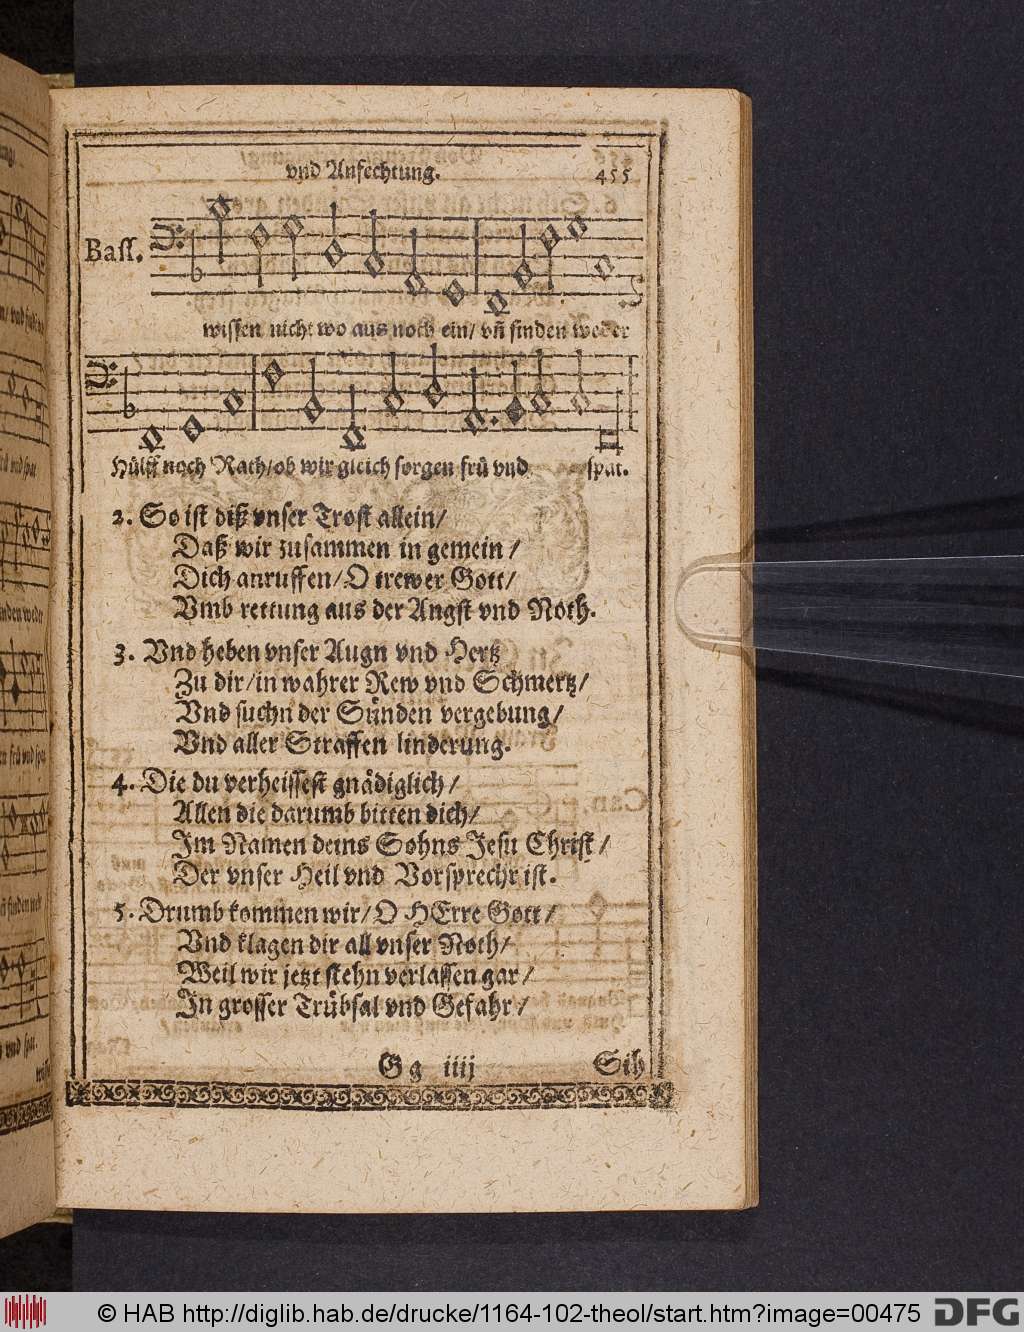 vnd Anfechtung.
455
Bass.
wissen nicht wo aus noch ein/ vñ finden weder
Hülff noch Rath/ob wir gleich sorgen frü vnd spat.
2. So ist diß vnser Trost allein/
Daß wir zusammen in gemein /
Dich anruffen/O trewer Gott/
Vmb rettung aus der Angst vnd Noth.
3. Vnd heben vnser Augn vnd Hertz
Zu dir/in wahrer Rew vnd Schmertz/
Vnd suchn der Sünden vergebung/
Vnd aller Straffen linderung.
4. Die du verheissest gnädiglich/
Allen die darumb bitten dich/
Im Namen deins Sohns Jesu Christ /
Der vnser Heil vnd Vorsprechr ist.
5. Drumb kommen wir/ O HErre Gott/
Vnd klagen dir all vnser Noth/
Weil wir jetzt stehn verlassen gar/
In grosser Trübsal vnd Gefahr/
G g iiij
Sih
© HAB http://diglib.hab.de/drucke/1164-102-theol/start.htm?image=00475
DFG